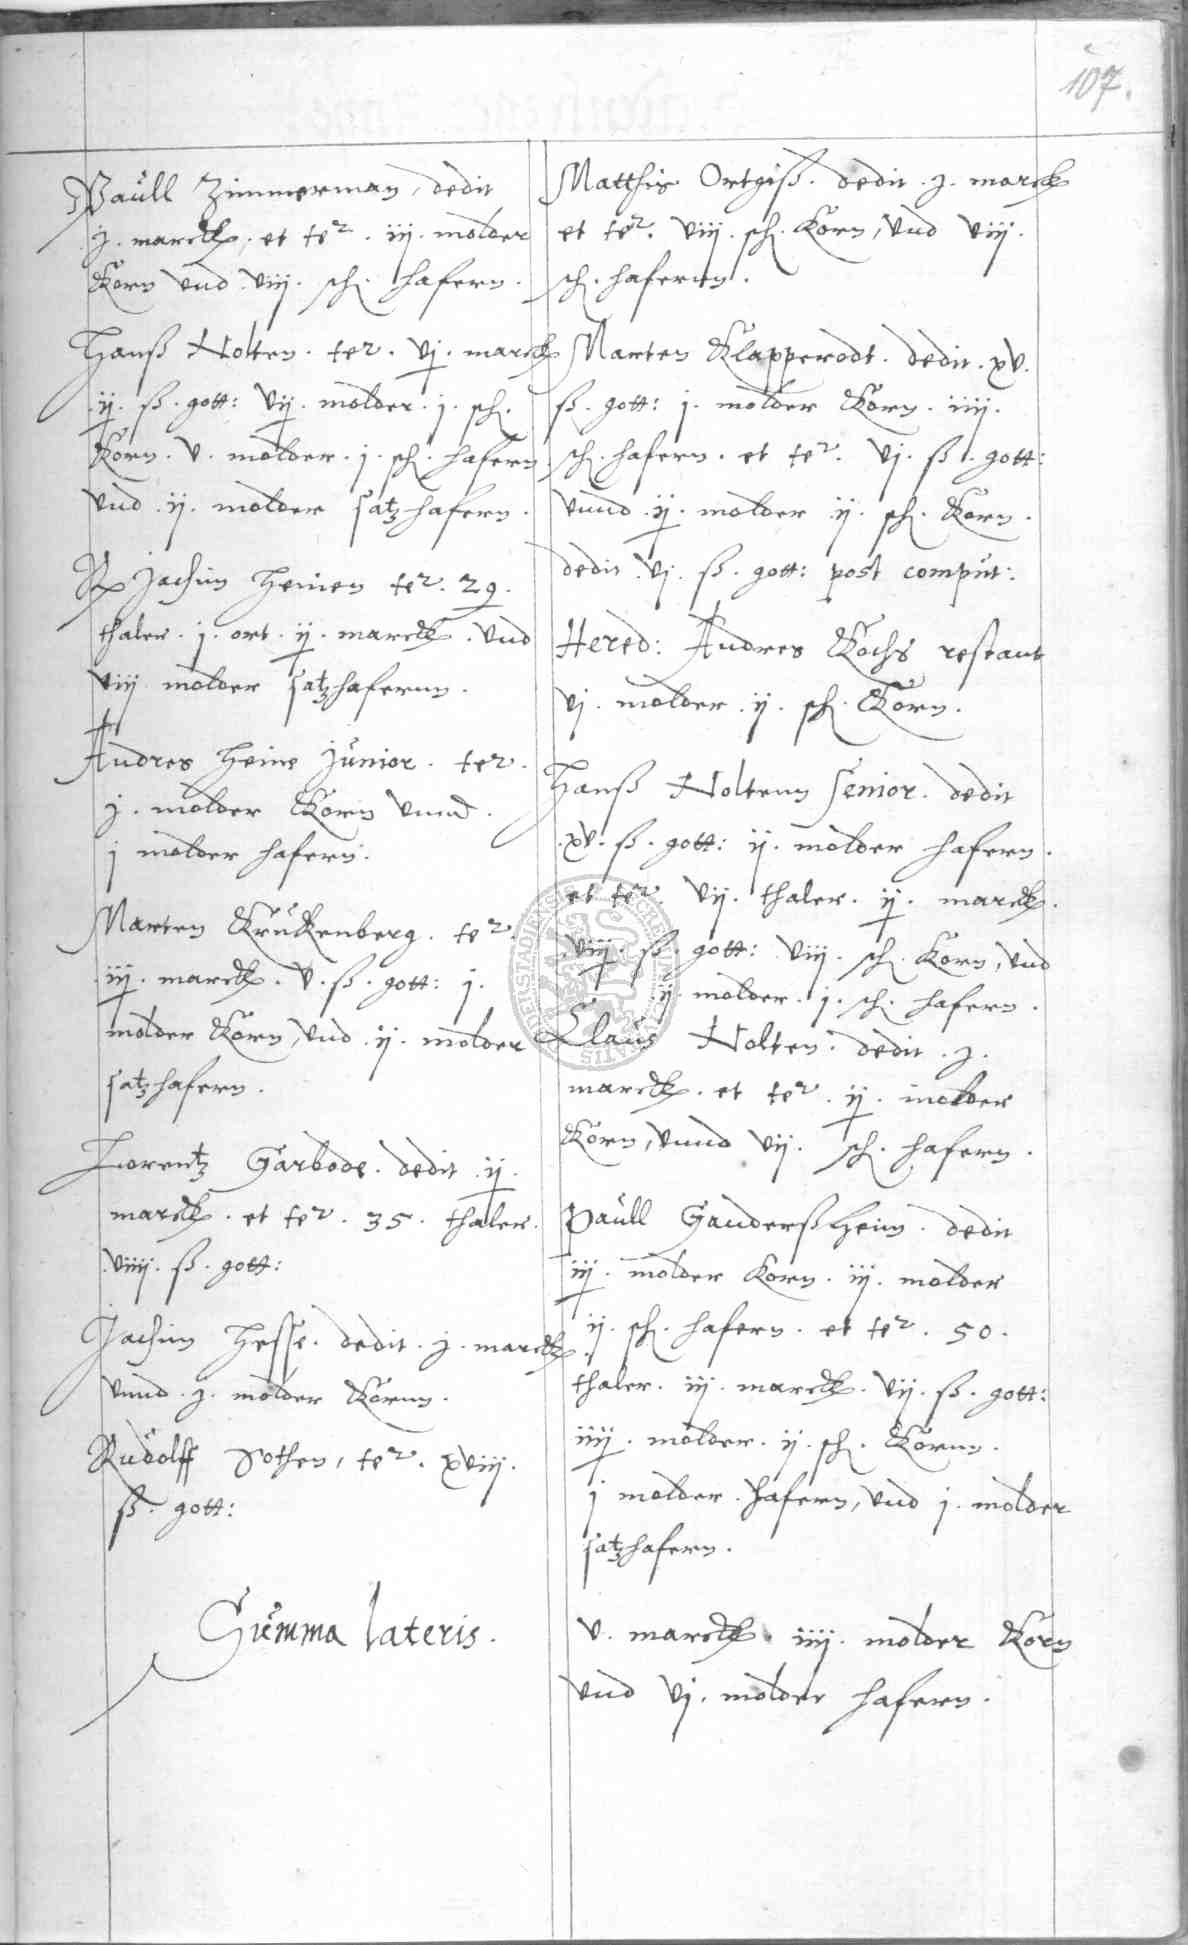 107.
Paull Zimmerman, dedit
j. marck, et ter. iij. molder
Korn vnd viij. sch. hafern.
Hanß Nolten. ter. vj. marck
ij. ß. gott: vij. molder. j. sch.
Korn. v. molder. j. sch. hafern
vnd ij. molder satzhafern.
Jachim Heinen ter. 29.
thaler. j. ort. ij. marck. vnd
viij molder satzhafernn.
Andres Heine Junior. ter.
j. molder Korn vnnd.
j molder hafern.
Marten Kruckenberg. ter.
iij. marck. v. ß. gott: j.
molder Korn, vnd ij. molder
satzhafern.
Lorentz Garbode. dedit ij.
marck. et ter. 35. thaler.
viiij. ß. gott:
Jachim Hesse. dedit. j. marck.
vnnd j. molder Kornn.
Rudolff Sothen, ter. xviij.
ß. gott:
Summa lateris.
Matthis Ortgiß. dedit. j. marck
et ter. viij. sch. Korn, vnd viij.
sch. hafernn.
Marten Klapperodt. dedit. xv.
ß. gott: j. molder Korn. iiij.
sch. hafern. et ter. vj. ß. gott:
vnnd ij. molder ij. sch. Korn.
dedit vj. ß. gott: post comput:
Hered: Andres Kochs restant
vj. molder ij. sch. Korn.
Hanß Noltenn Senior. dedit
xv. ß. gott: ij. molder hafern.
et ter. vij. thaler. ij. marck.
viij. ß. gott: viij. sch. Korn, vnd
ij. molder. j. sch. hafern.
Claus Nolten. dedit. j.
marck. et ter. ij. molder
Korn, vnnd vij. sch. hafern.
Paull Ganderßheim. dedit
iij. molder Korn. iij. molder
ij. sch. hafern. et ter. 50.
thaler. iij. marck. vij. ß. gott:
iiij. molder. ij. sch. Kornn.
j molder. hafern, vnd j. molder
satzhafern.
v. marck. iiij. molder Korn
vnd vj. molder hafern.